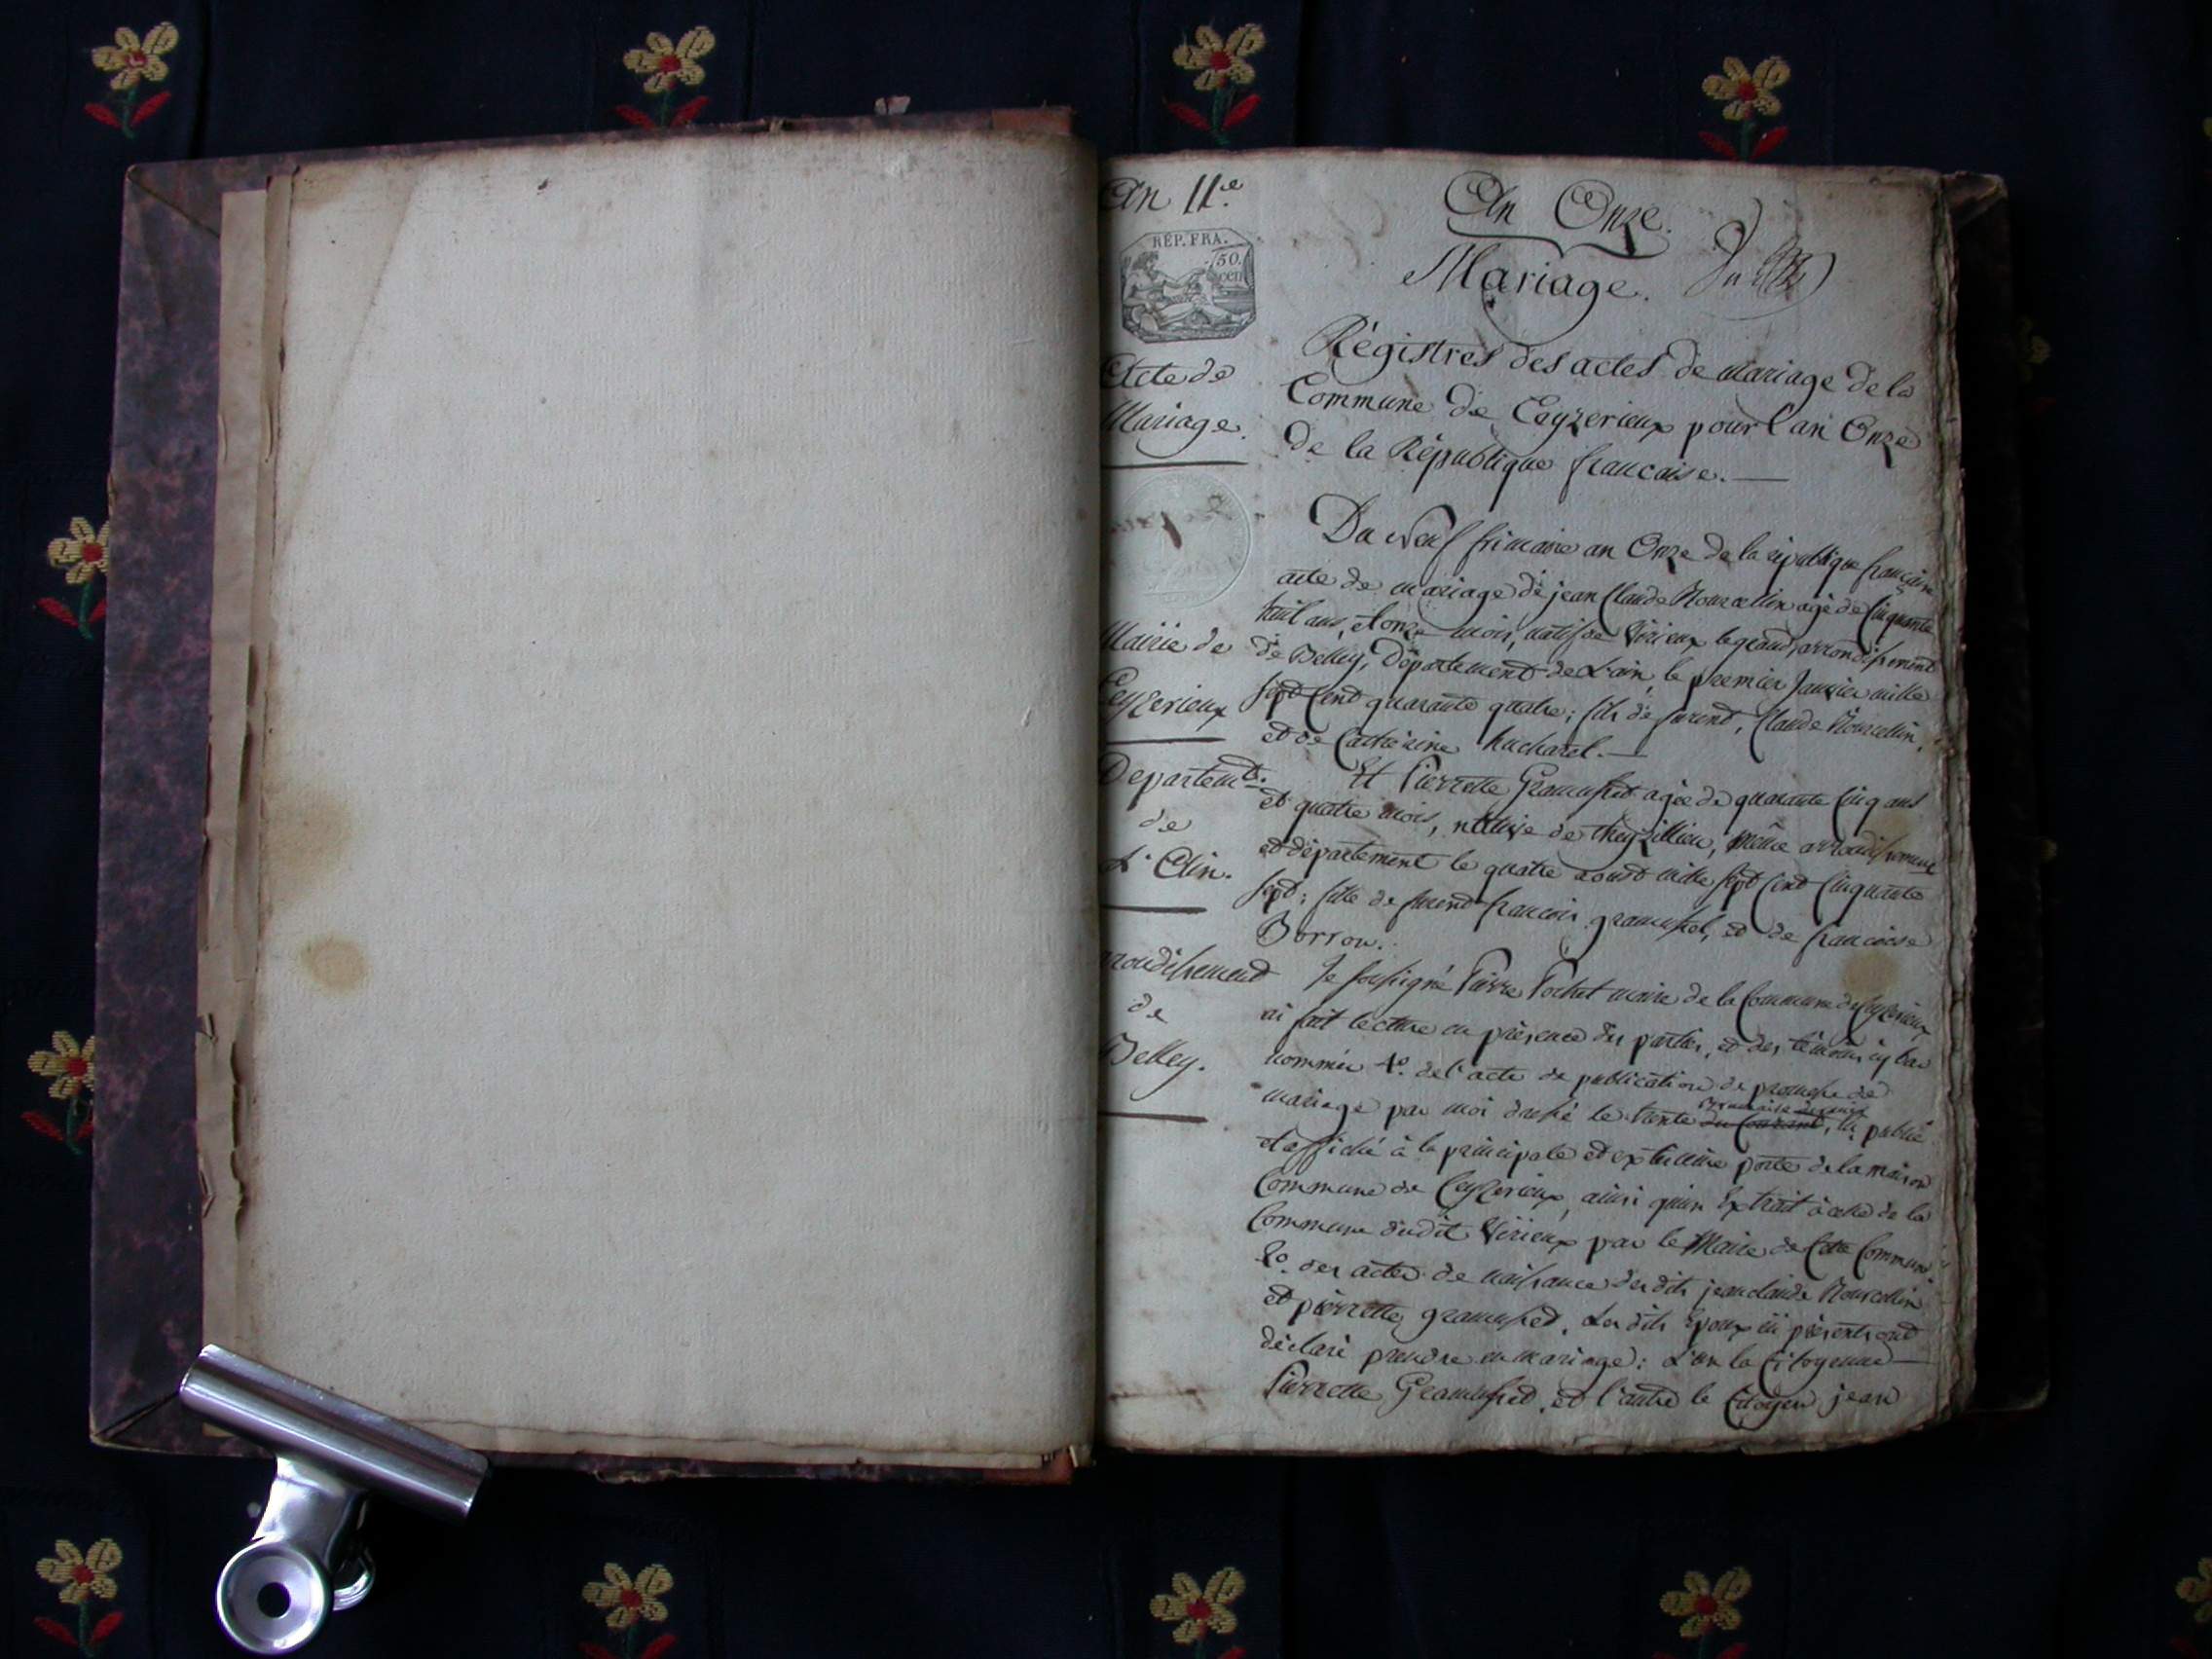 An 11.e
RÉP. FRA.
50.
cen
Acte de
Mariage.
Mairie de
Ceyzerieux
Departemt.
de
L'Ain.
arrondissement
de
Belley.
An Onze.
Mariage.
Régistres des actes de mariage de la
Commune de Ceyzerieux pour l'an Onze
de la République française.
Du Neuf frimaire an Onze de la république française
acte de mariage de jean Claude Nourcellin agé de Cinquante
huit ans, et onze mois, natif de Virieux le grand, arrondissement
de Belley, Département de L'ain, le premier Janvier mille
sept Cent quarante quatre; fils de furent, Claude Nourcellin,
et de Catherine
Et Pierrette Gramusset agée de quarante Cinq ans
et quatre mois, native de theyzillieu, même arrondissement
et département le quatre aoust mille sept Cent Cinquante
sept; fille de furent françois gramusset, et de françoise
Borron.
Je soussigné Pierre Pochet maire de la Commune de Ceyzerieux
ai fait lecture en présence des parties, et des témoins cy bas
nommés 1º. de l'acte de publication de promesse de
mariage par moi dressé le trente du Courant, lu publié
brumaire dernier
et affiché à la principale et extérieure porte de la maison
Commune de Ceyzerieux, ainsi qu'un Extrait à celle de la
Commune dudit Virieux par le Maire de Cette Commune
2º. des actes de naissance desdits jean claude Nourcellin
et pierrette gramusset. Lesdits Epoux ici présents ont
déclaré prendre en mariage: L'un la Citoyenne
Pierrette Gramusset, et l'autre le Citoyen jean